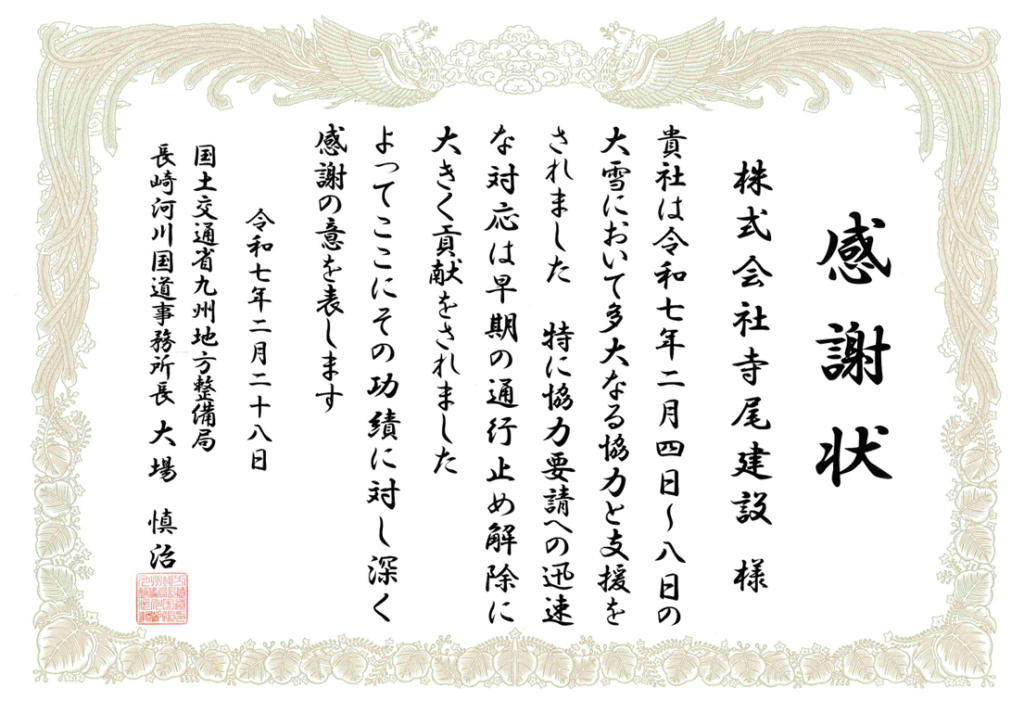 感謝状
株式会社寺尾建設 様
貴社は令和七年二月四日～八日の
大雪において多大なる協力と支援を
されました 特に協力要請への迅速
な対応は早期の通行止め解除に
大きく貢献をされました
よってここにその功績に対し深く
感謝の意を表します
令和七年二月二十八日
国土交通省九州地方整備局
長崎河川国道事務所長 大場 慎治